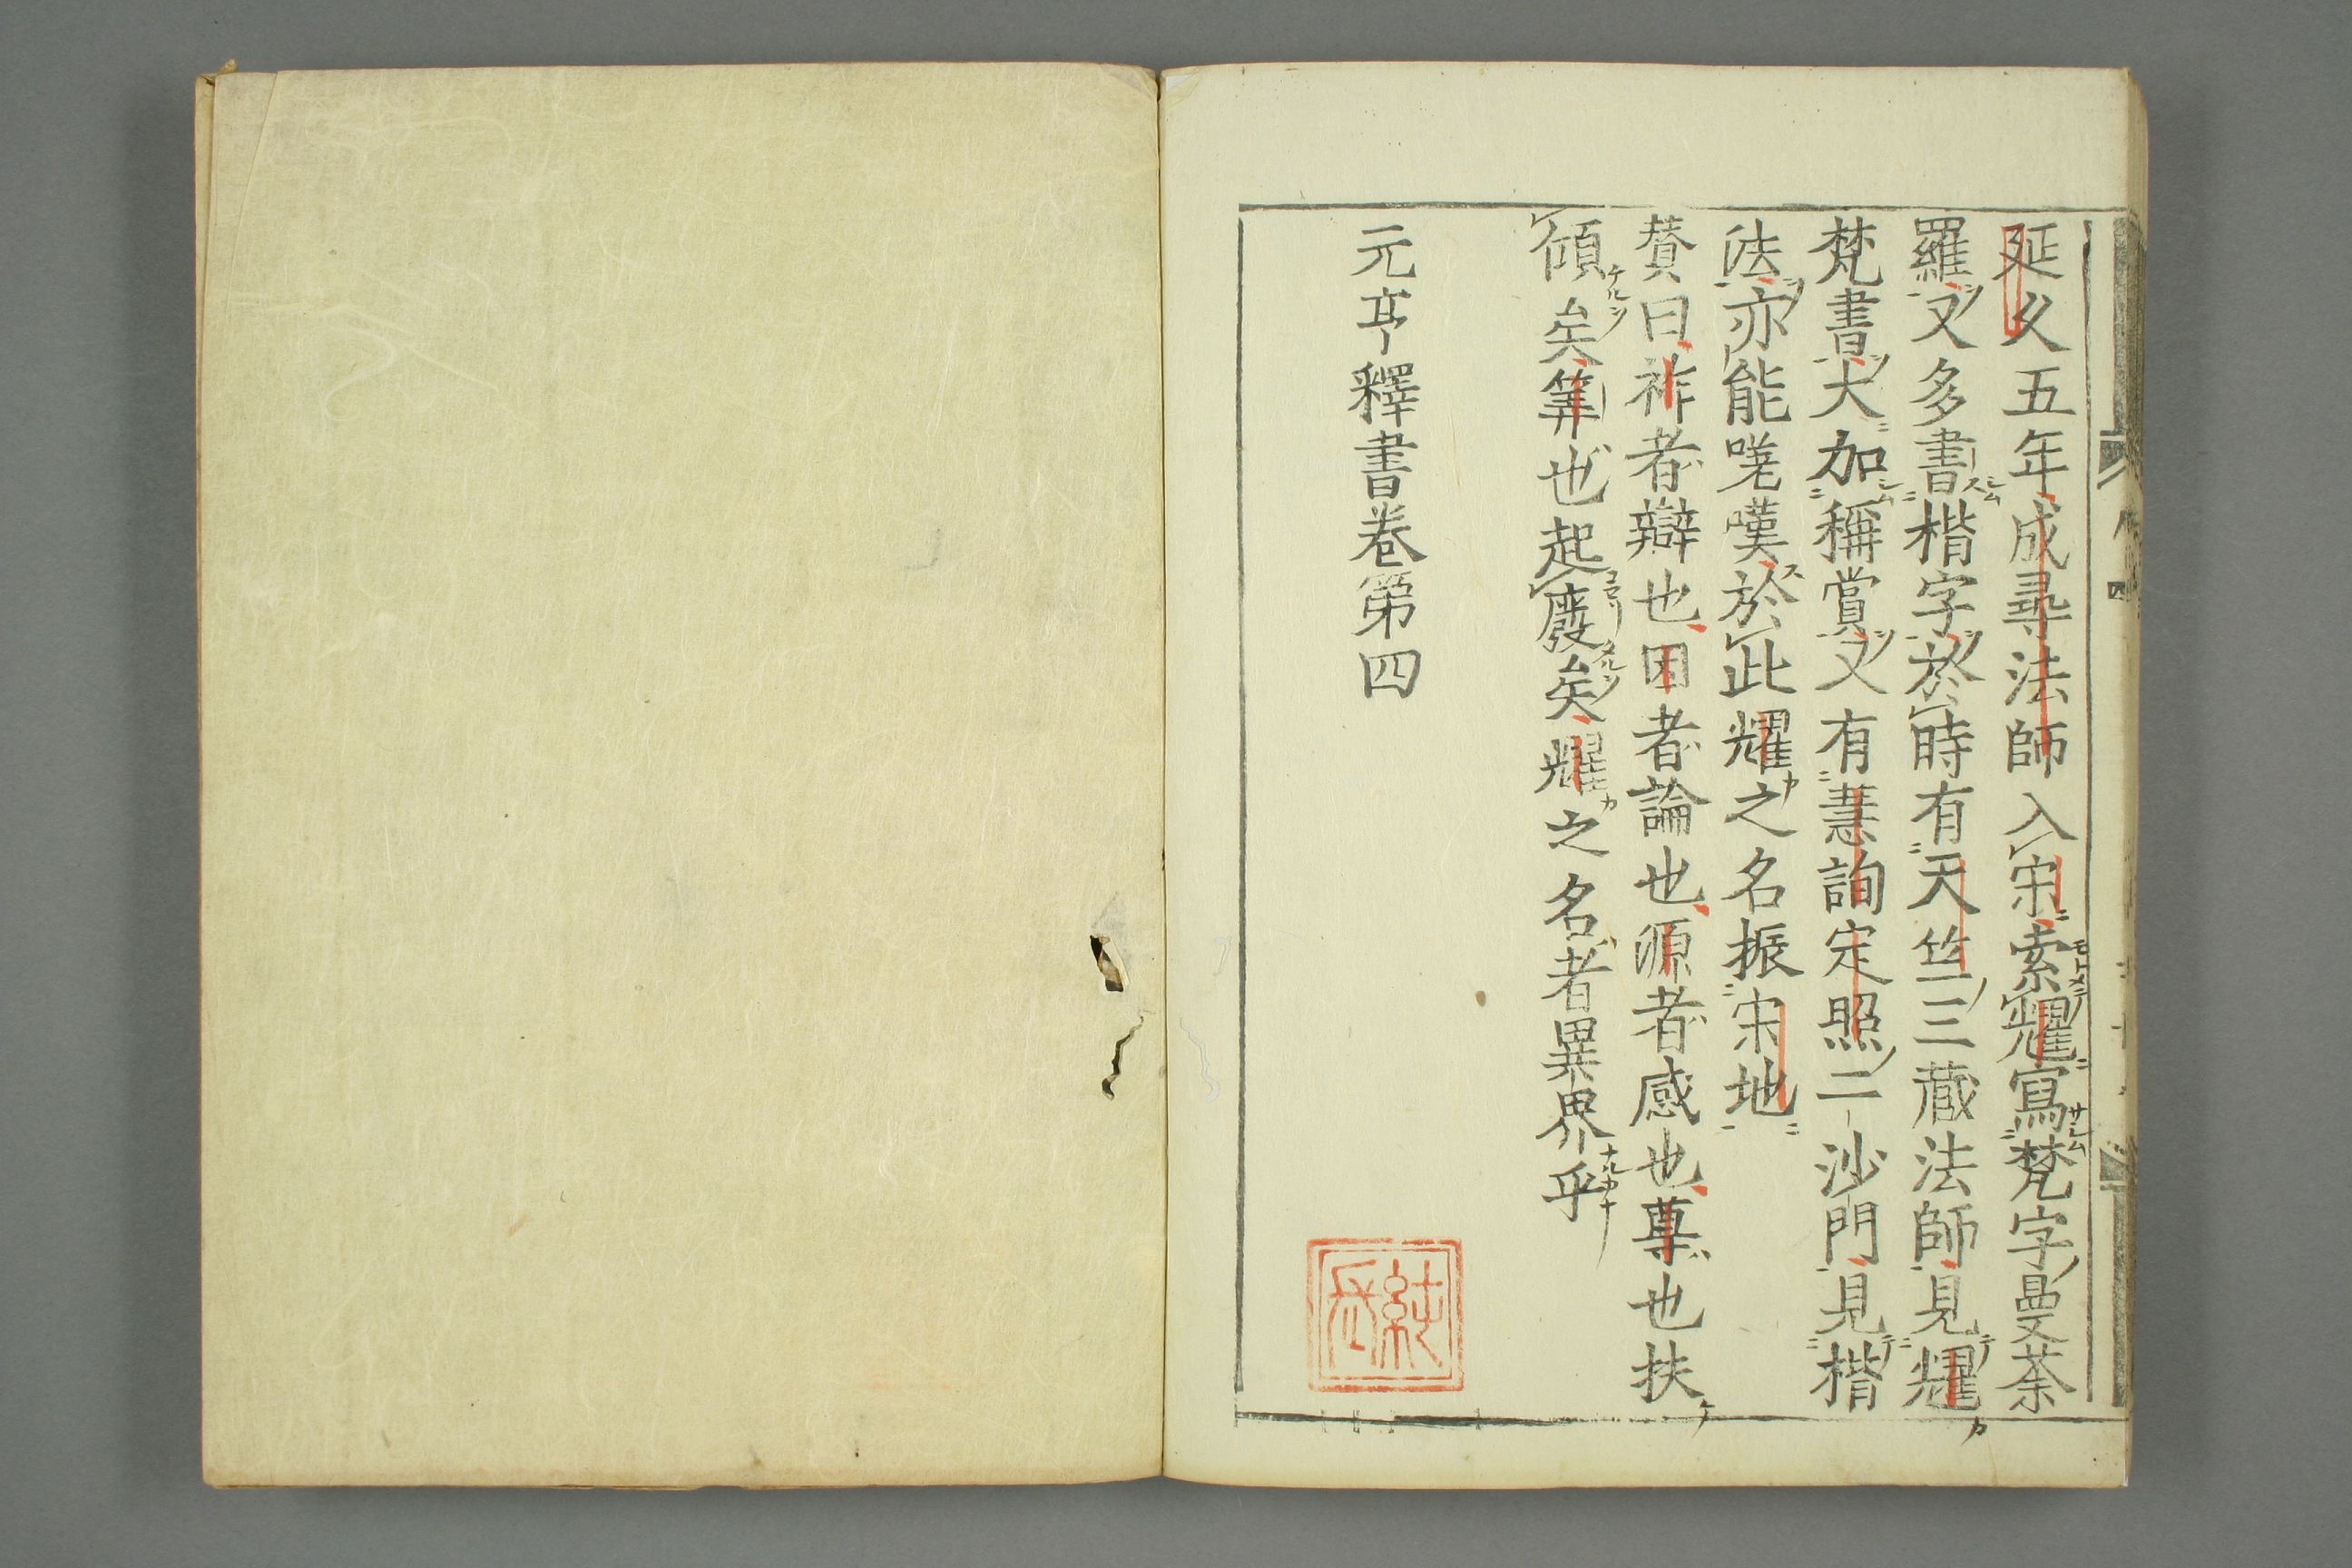 延久五年成尋法師入宋索耀寫梵字曼荼
羅又多書楷字於時有天竺三藏法師見耀
梵書大加稱賞又有慧詢定照二沙門見楷
法亦能嗟嘆於此耀之名振宋地
賛曰祚者辯也因者論也源者感也真也扶
傾矣筭也起廢矣耀之名者異界乎
元亨釋書卷第四